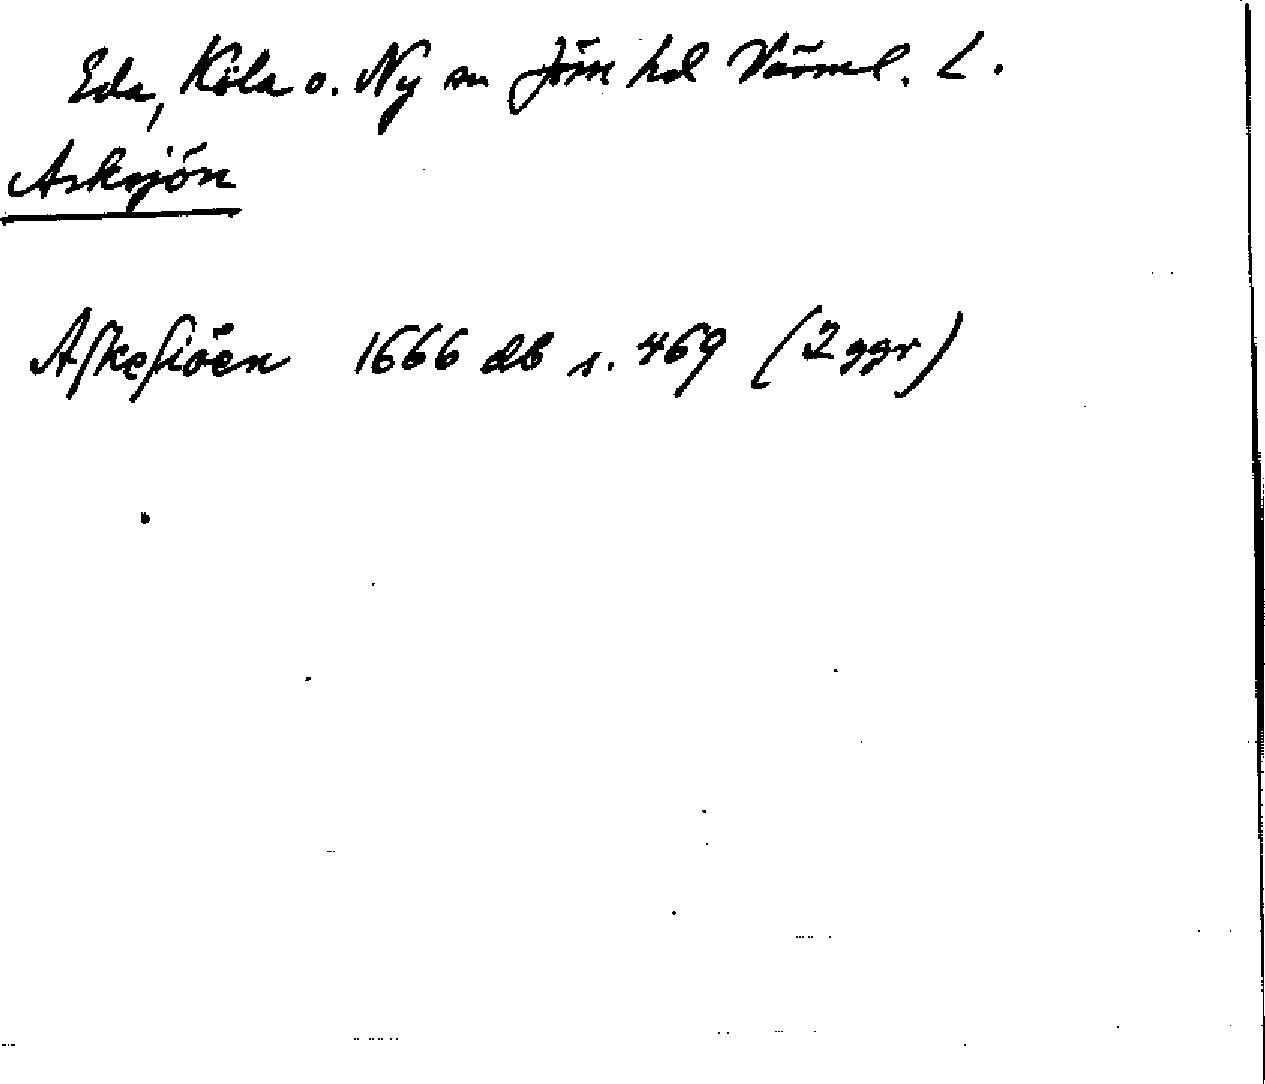 Eda, Köla o. Ny sn Jöss hd Värml. L.
Asksjön
Aſkeſiöen 1666 db s. 469 (2 ggr)